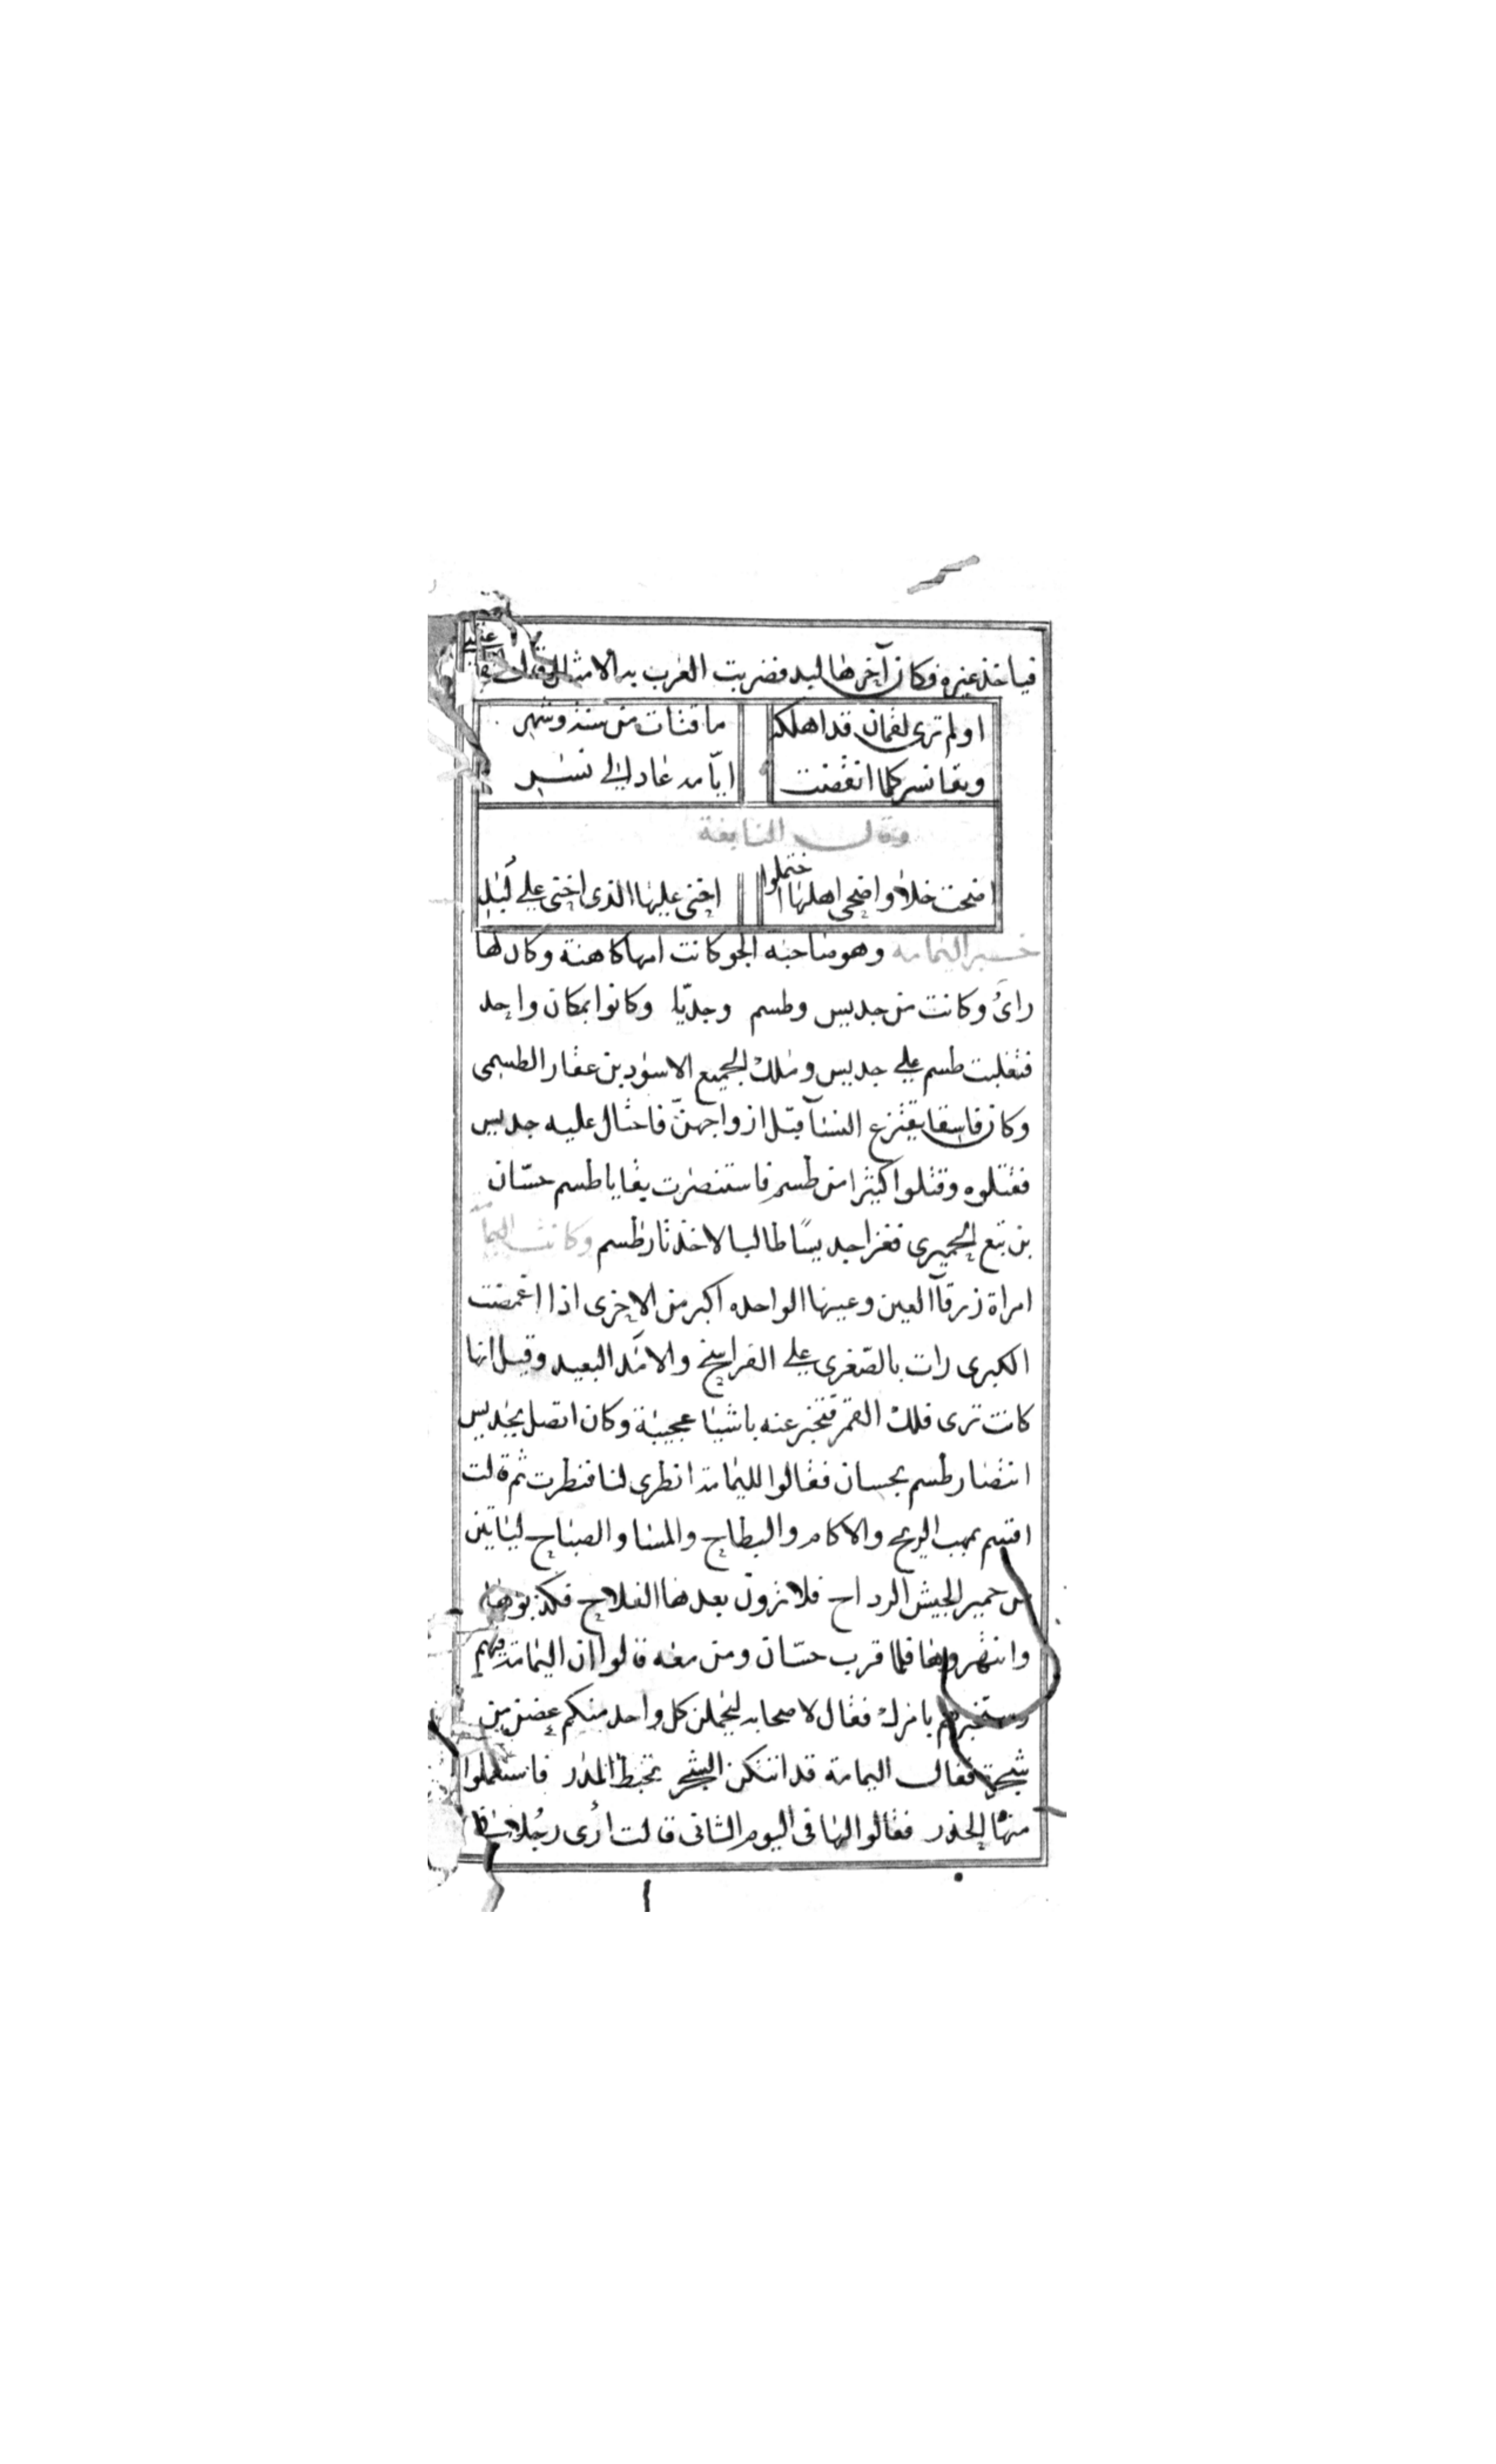 فياخذ غيره وكان آخرها لبد فضربت العرب به الامثال
اولم ترى لقمان قد اهلكه ما قتات من سنة وشهر
وبقا نسر كلما انقضت ايامه عاد الى نسر
وقال النابغة
اضحت خلاء واضحى اهلها احتملوا اخنى عليها الذى اخنى على لبد
خبر اليمامة وهو صاحبة الجو كانت امها كاهنة وكان لها
راىُ وكانت من جديس وطسم وكانوا بمكان واحد
فتغلبت طسم على جديس وملك الجميع الاسود بن عفار الطسمى
وكان فاسقا يقترع النسآ قبل ازواجهنّ فاحتال عليه جديس
فقتلوه وقتلوا كثيرا من طسم فاستنصرت بقايا طسم حسّان
بن تبع الحميرى فغزا جديسًا طالبا لاخذ ثار طسم وكانت اليمامة
امراة زرقآ العين وعينها الواحده اكبر من الاخرى اذا اغمضت
الكبرى رات بالصّغرى على الفراسخ والامَد البعيد وقيل انها
كانت ترى فلك القمر فتخبر عنه باشيا عجيبة وكان اتصل بجديس
انتصار طسم بحسان فقالوا لليمامة انظرى لنا فنظرت ثم قالت
اقسم بمهب الريح والاكام والبطاح والمسا والصباح لياتين
من حمير الجيش الرداح فلا ترون بعدها الفلاح فكذبوها
وانتهروها فلما قرب حسّان ومن معه قالوا ان اليمامة
بامرك فقال لاصحابه ليحملن كل واحد منكم غصن من
شجرة فقالت اليمامة قد اتتكن الشجر تخبط المدر فاستعملوا
منها الحذر فقالوا لها فى اليوم الثانى قالت أرى رجلا